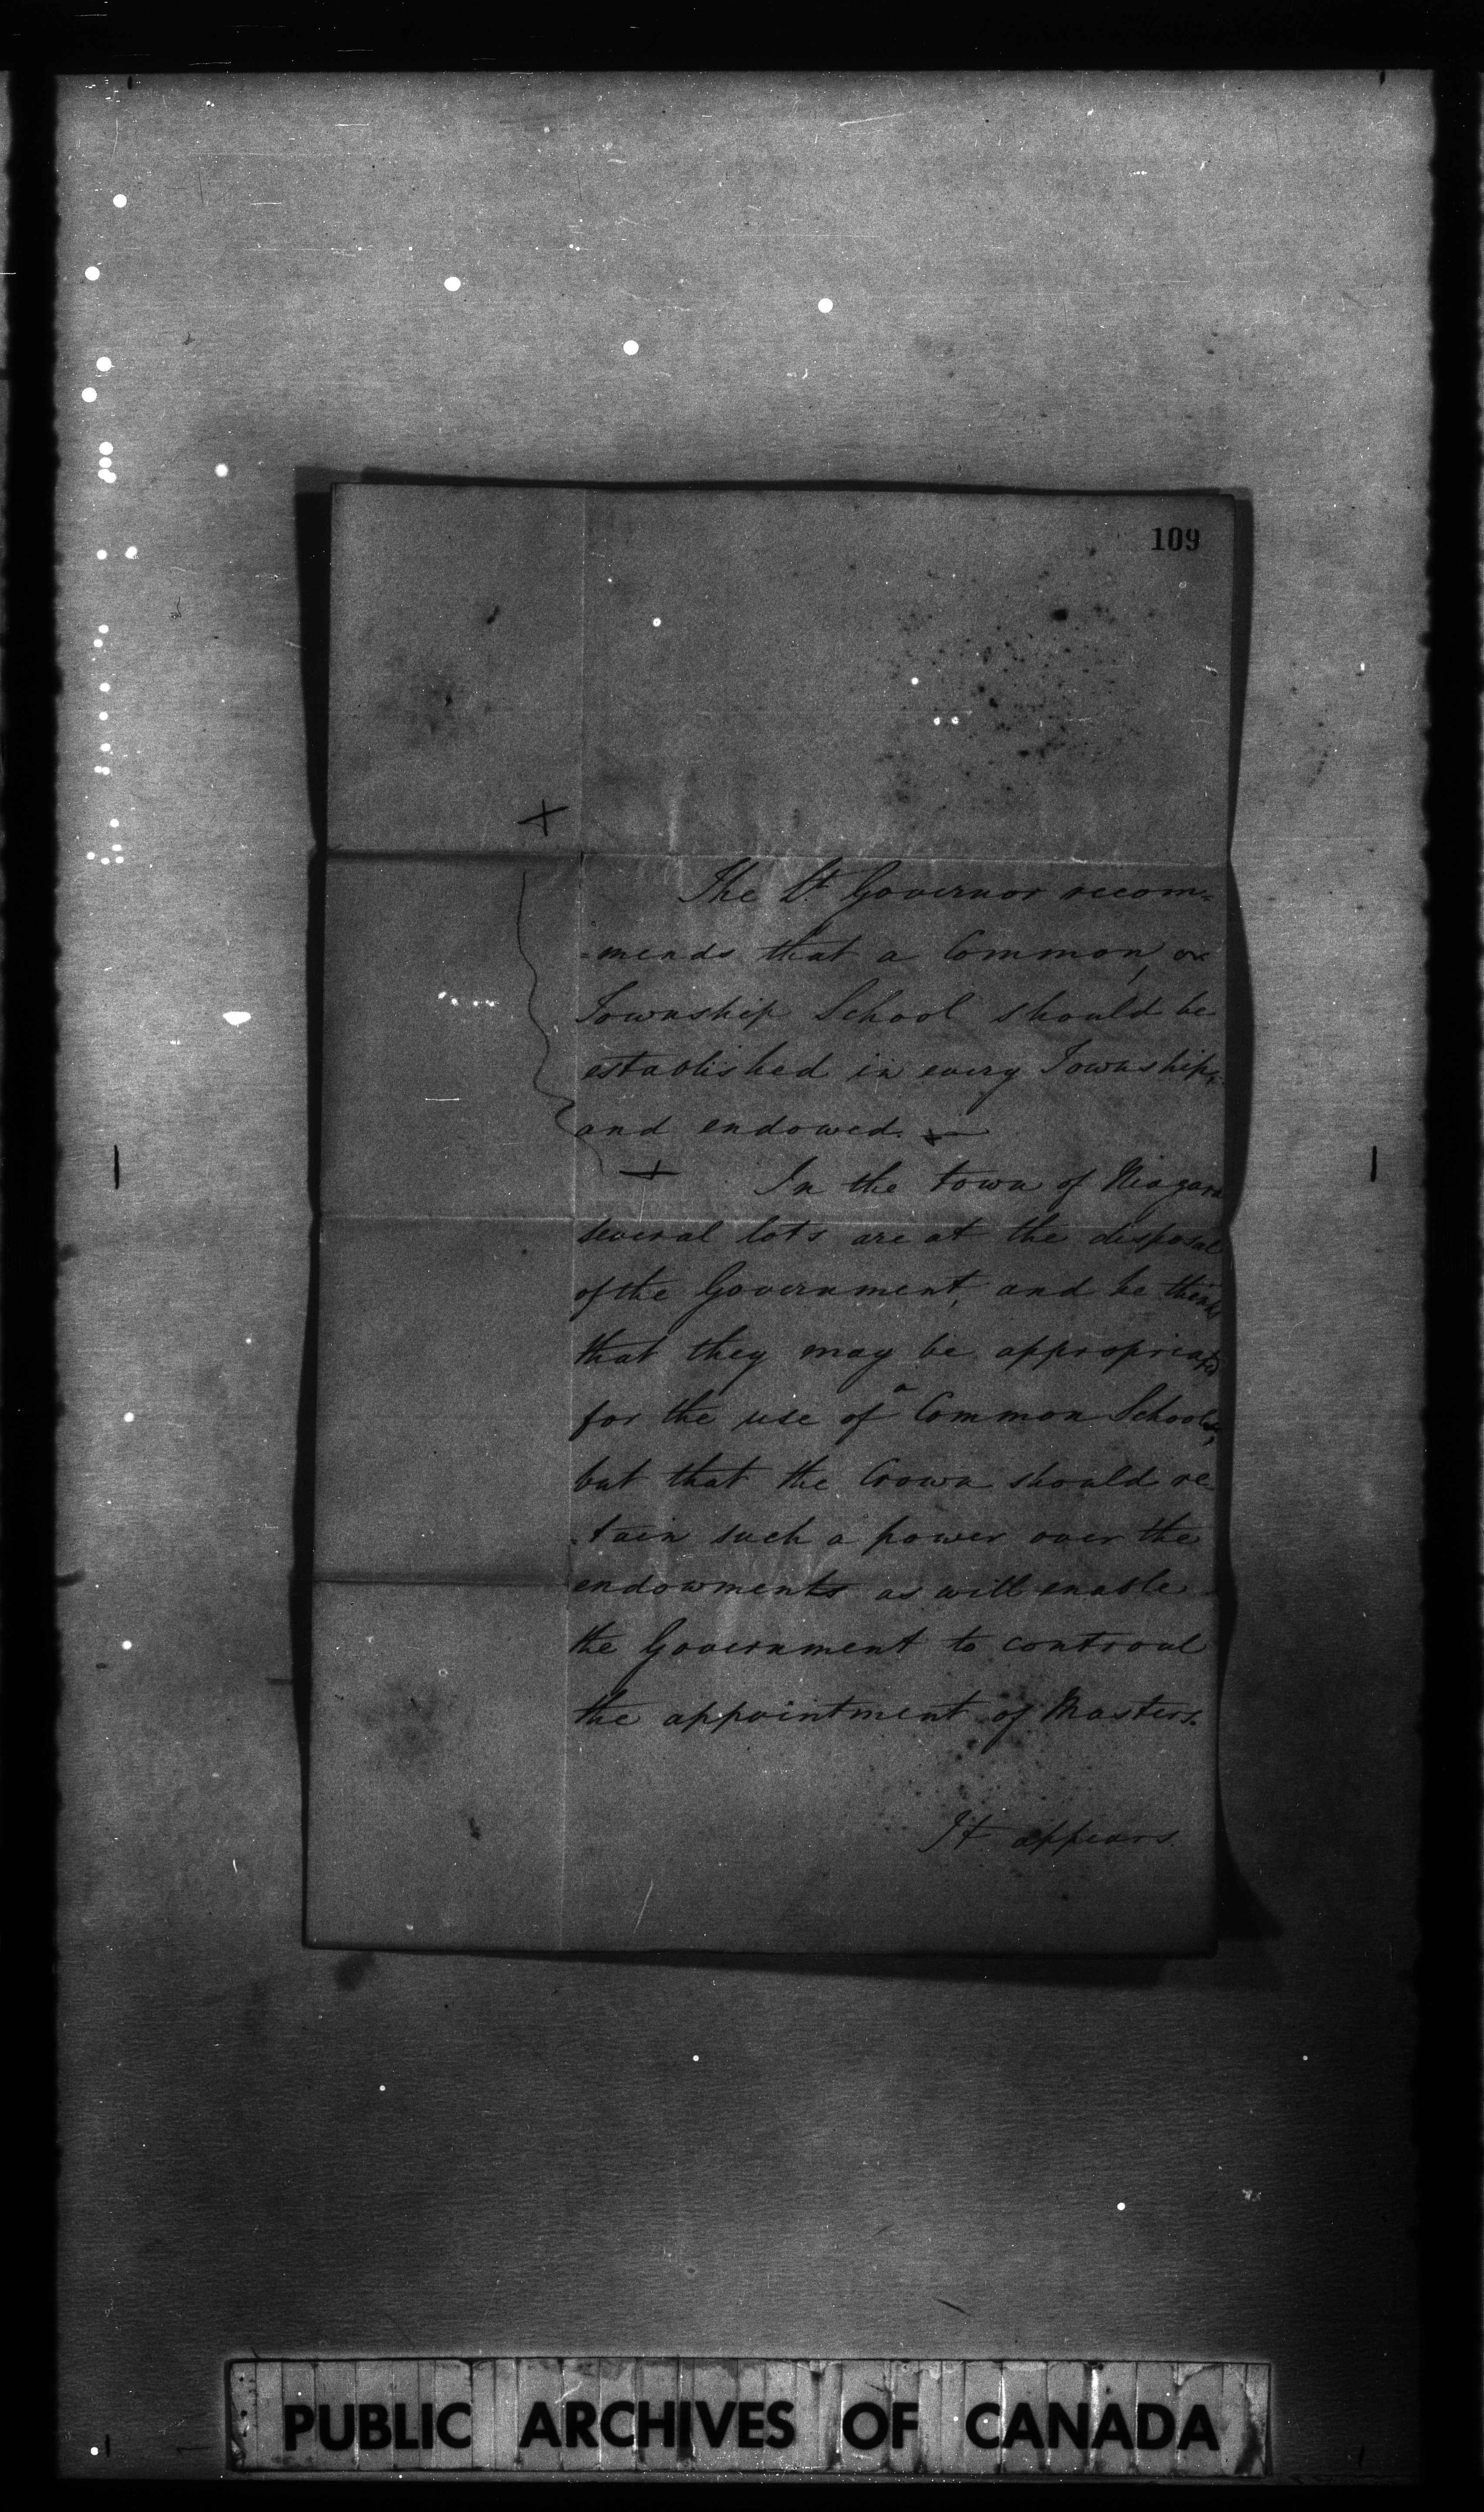 109
The Lt. Governor recom=
=mends that a Common, or
Township School should be
established in every Township,
and endowed.
In the town of Niagara
several lots are at the disposal
of the Government, and he thinks
that they may be appropriated
for the use of a Common School,
but that the Crown should re
-tain such a power over the
endowments as will enable
the Government to controul
the appointment of Masters.
It appears.
PUBLIC ARCHIVES OF CANADA